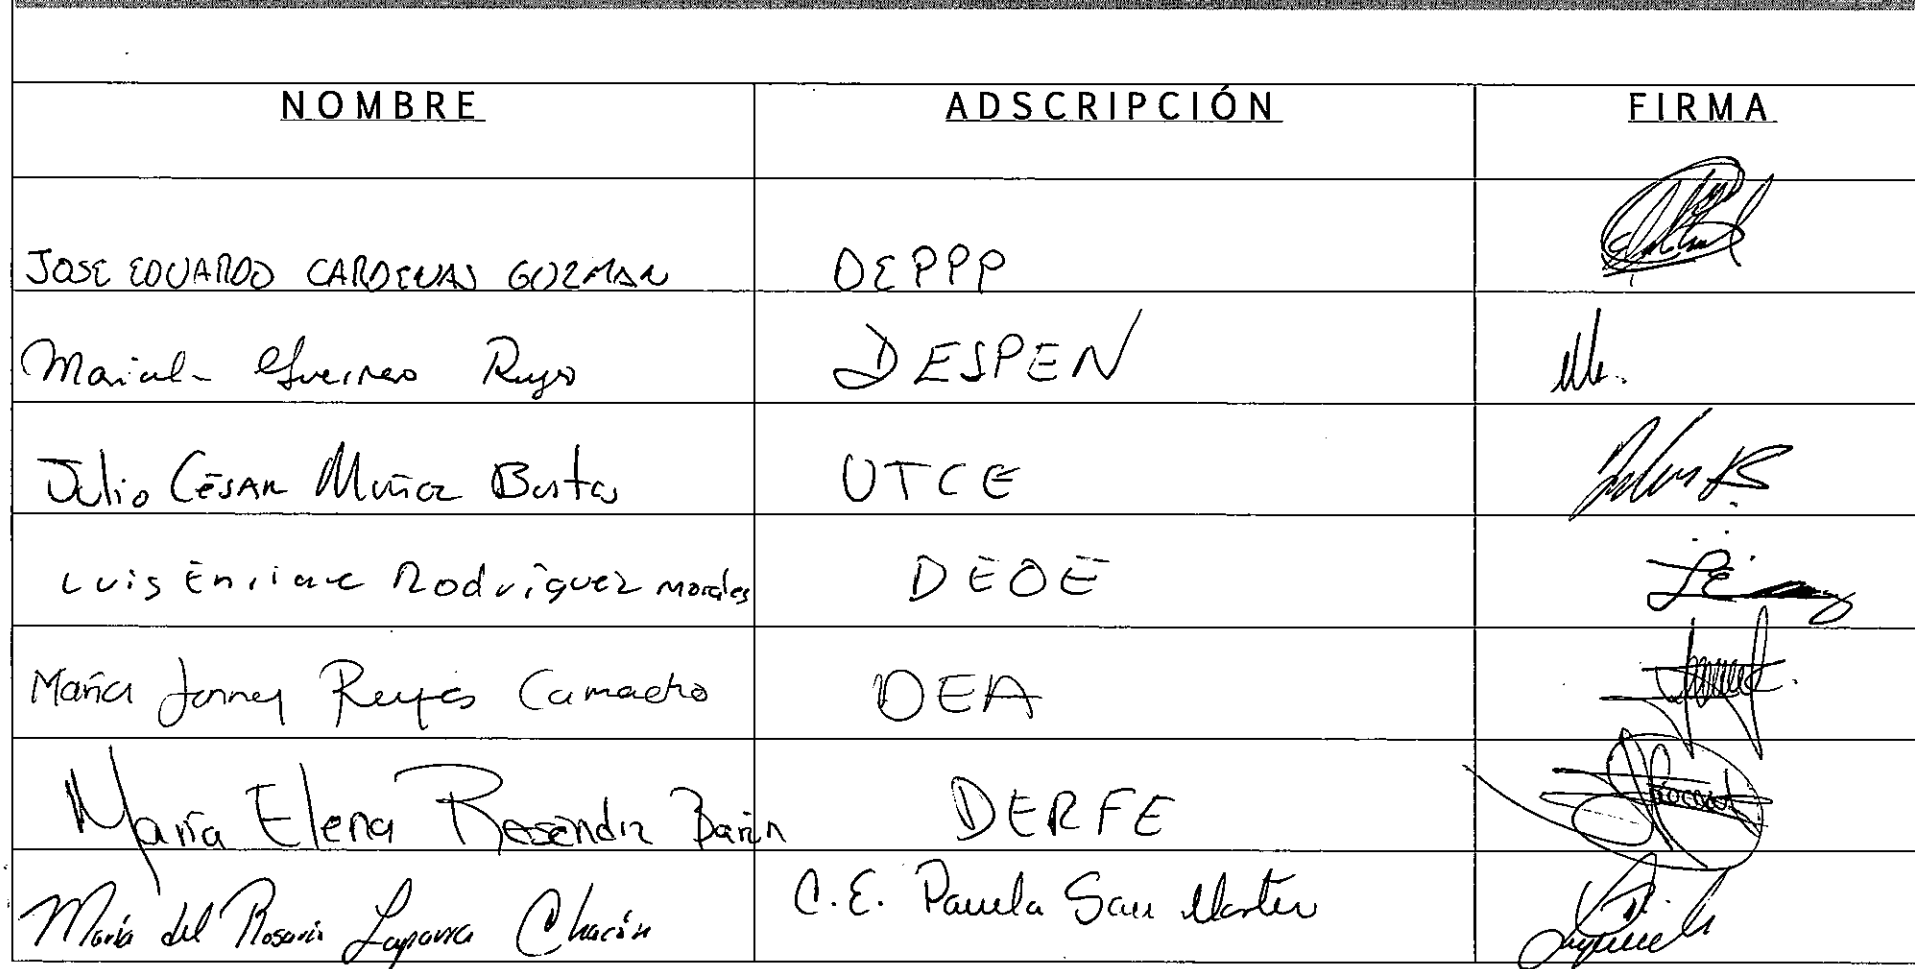 NOMBRE ADSCRIPCIÓN FIRMA
JOSE EDUARDO CARDENAS GUZMAN DEPPP
DESPEN
Julio César Muñoz Bustos UTCE
Luis Enrique Rodríguez Morales DEOE
María Janney Reyes Camacho DEA
María Elena Resendiz DERFE
María del Rosario Laparra Chacón C.E. Pamela San Martín